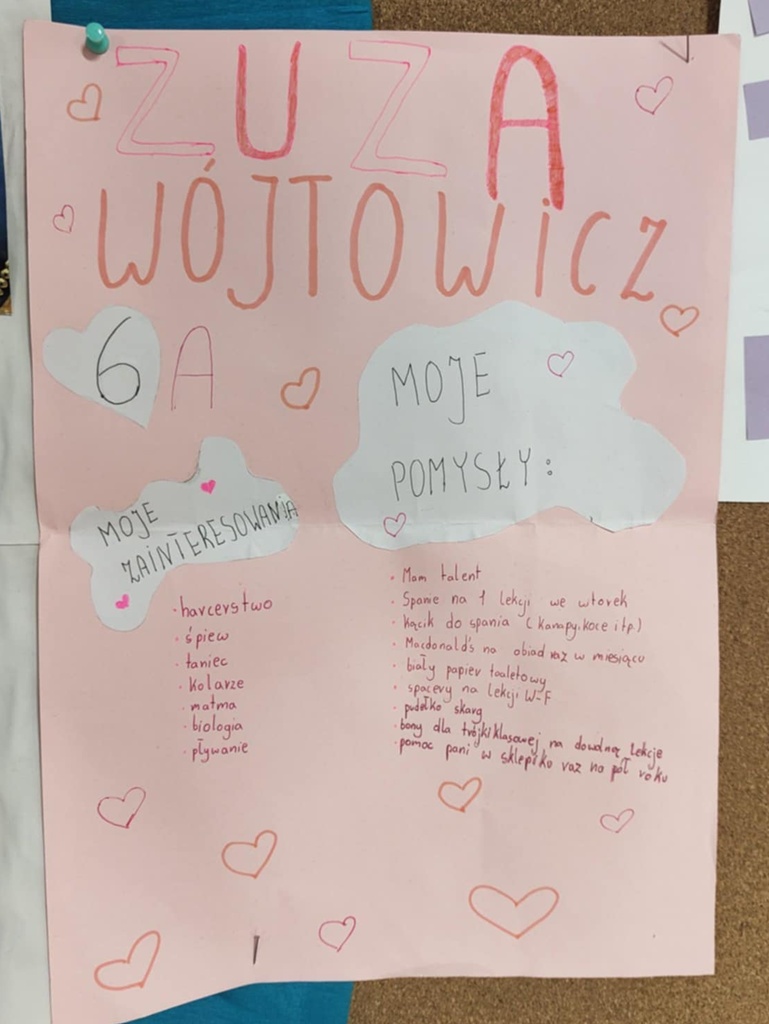 ZUZA
WÓJTOWICZ
6 A
MOJE
ZAINTERESOWANIA
• harcerstwo
• śpiew
• taniec
• kolarze
• matma
• biologia
• pływanie
MOJE
POMYSŁY:
• Mam talent
• Spanie na 1 lekcji we wtorek
• kącik do spania (kanapy, koce itp.)
• Macdonald's na obiad raz w miesiącu
• biały papier toaletowy
• spacery na lekcji W-F
• pudełko skarg
• bony dla trójki klasowej na dowolną lekcje
• pomoc pani w sklepiku raz na pół roku